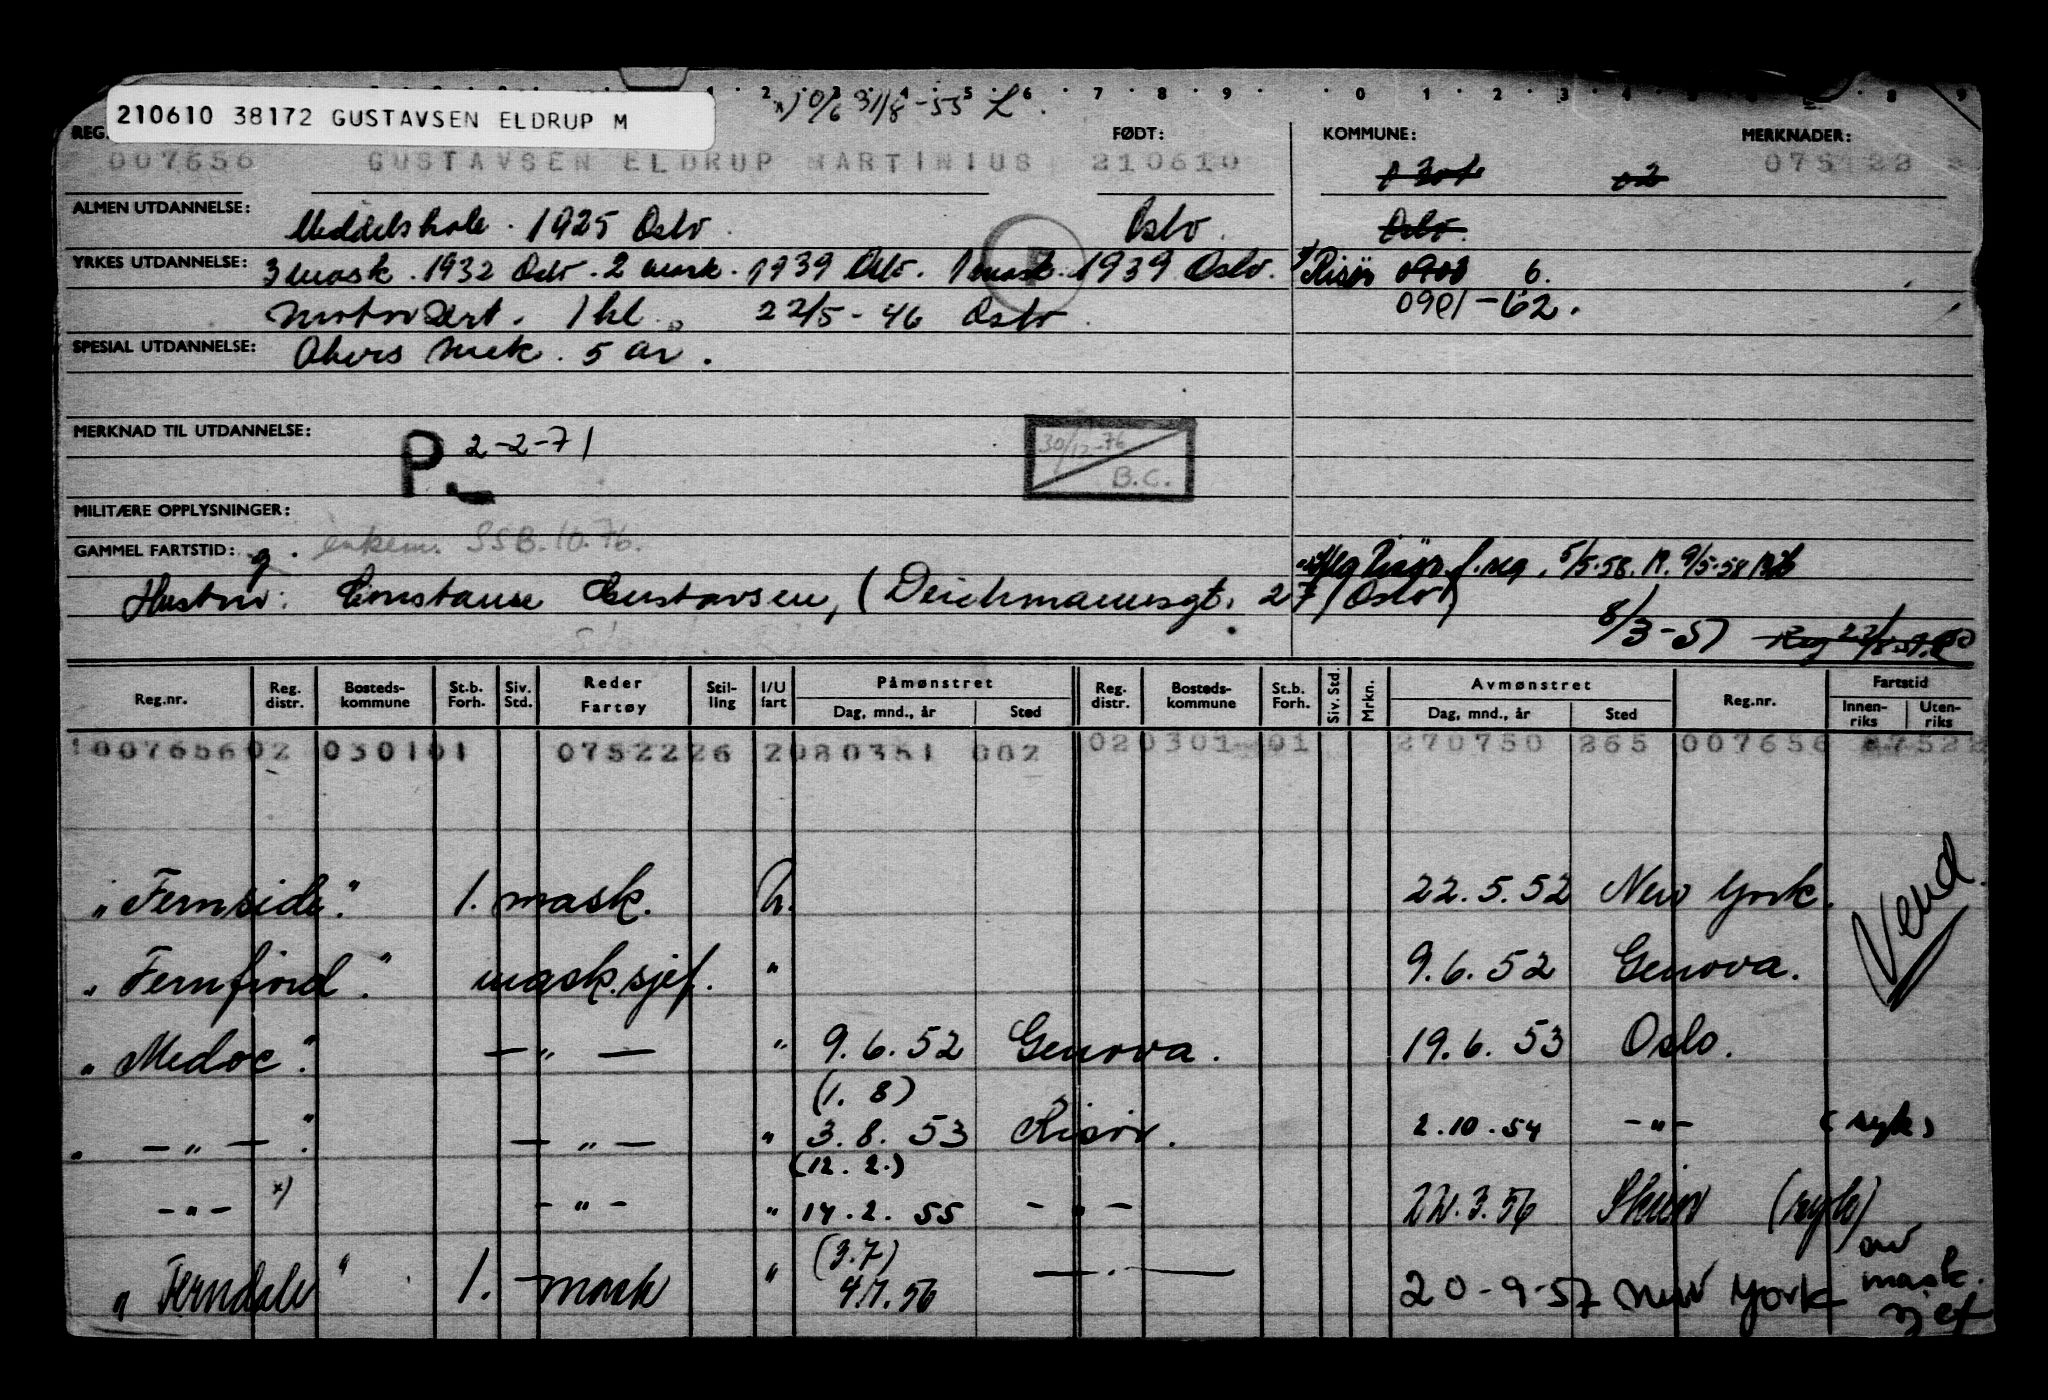 210610 38172 GUSTAVSEN ELDRUP M
x) 0/6 31/8-55 L.
1 · 2 · 3 · 4 · 5 · 6 · 7 · 8 · 9 · 0 · 1 · 2 · 3 · 4 · 5 8 9
REG. FØDT: KOMMUNE: MERKNADER:
007656 GUSTAVSEN ELDRUP MARTINIUS 210610 075122 2
0301 02
ALMEN UTDANNELSE: Middelskole. 1925 Oslo. Oslo. Oslo.
YRKES UTDANNELSE: 3 mask. 1932 Oslo. 2 mask. 1939 Oslo. 1 mask. 1939 Oslo. Risør 0901 6.
Motorsert. 1 kl. 22/5-46 Oslo 0901-62.
SPESIAL UTDANNELSE: Akers mek. 5 år.
MERKNAD TIL UTDANNELSE: P 2-2-71 30/12-76 B.C.
MILITÆRE OPPLYSNINGER:
GAMMEL FARTSTID: g. enkem. SSB.10.76.
Risør f. reg. 5/5-58. R. 9/5-58
Hustru: Constanse Gustavsen, (Deichmannsgt. 27 Oslo)
8/3-51 Reg
Reg.nr. Reg. distr. Bosteds-kommune St.b. Forh. Siv. Std. Reder Fartøy Stil-ling I/U fart Påmønstret Dag, mnd., år Sted Reg. distr. Bosteds-kommune St.b. Forh. Siv. Std. Mrkn. Avmønstret Dag, mnd., år Sted Reg.nr. Fartstid Innen-riks Uten-riks
00765602 030101 0752226 2080351 002 020301 01 270750 265 007656 0752
"Fernside" 1. mask. U. 22.5.52 New York. Vend
"Fernfjord" mask.sjef. " 9.6.52 Genova.
"Medoc" — " — " 9.6.52 Genova. 19.6.53 Oslo.
(1. 8)
" — " — " — " — " 3.8.53 Risør. 2.10.54 - " - (syk)
(12. 2.)
- " - x) - " - " 14.2.55 - " - 22.3.56 Skien (syk)
(3.7)
"Ferndale" 1. mask " 4.7.56 — " — 20-9-57 New York av mask. sjef